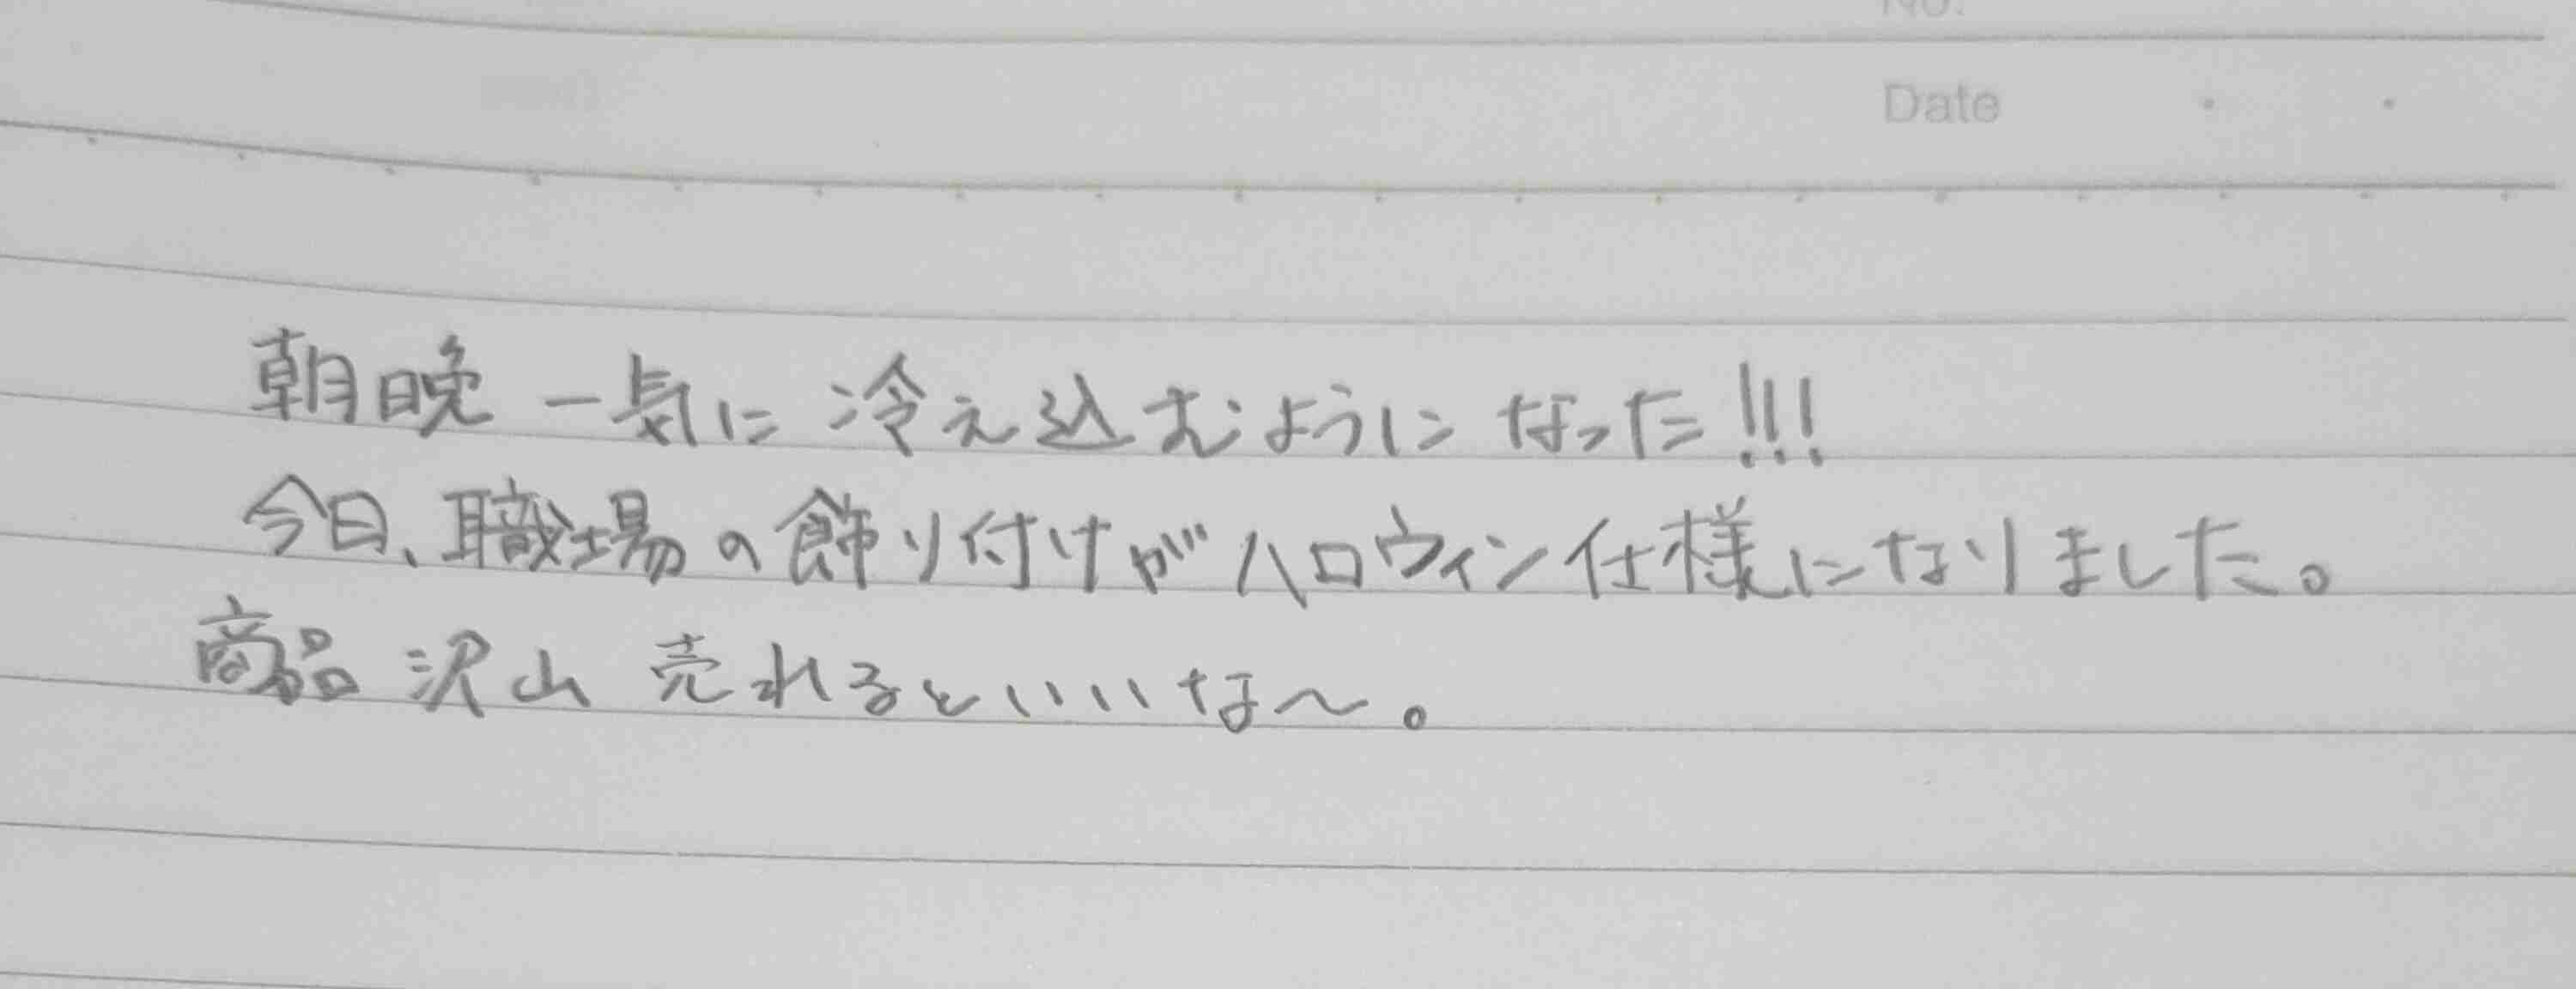 No.
Date
朝晩一気に冷え込むようになった!!!
今日、職場の飾り付けがハロウィン仕様になりました。
商品沢山売れるといいな〜。